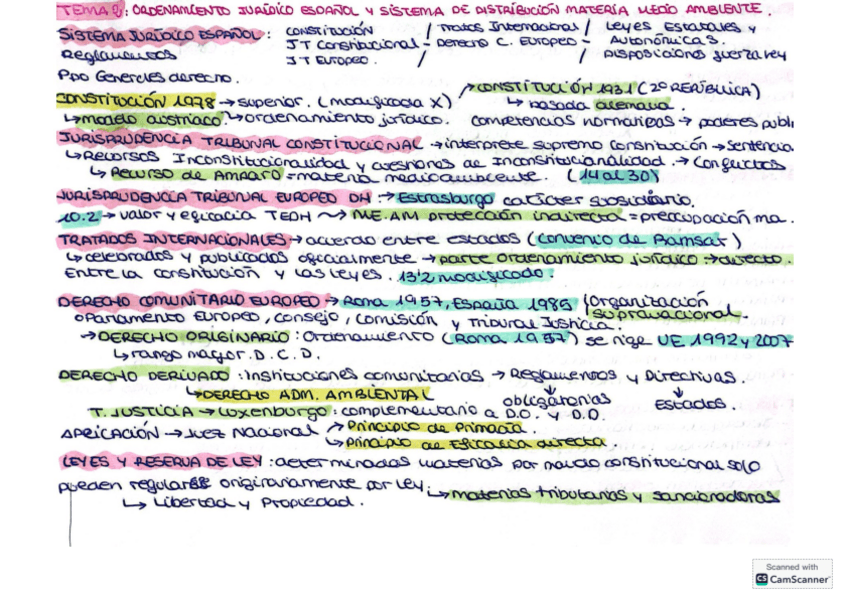 TEMA 2: ORDENAMIENTO JURÍDICO ESPAÑOL Y SISTEMA DE DISTRIBUCIÓN MATERIA MEDIO AMBIENTE.
SISTEMA JURÍDICO ESPAÑOL: CONSTITUCIÓN / Tratos Internacional / Leyes Estatales y
Reglamentos JT Constitucional - Derecho C. Europeo - Autonómicas.
JT Europeo. / / Disposiciones fuerza ley
Ppo Generales derecho.
CONSTITUCIÓN 1978 → superior. (modificada X) ↗ CONSTITUCIÓN 1931 (2º REPÚBLICA)
↳ modelo austriaco. ↳ ordenamiento jurídico. ↳ basada alemana. competencias normativas → poderes públi
JURISPRUDENCIA TRIBUNAL CONSTITUCIONAL → intérprete supremo constitución → sentencia
↳ Recursos Inconstitucionalidad y cuestiones de Inconstitucionalidad. → Conflictos
↳ Recurso de Amparo = materia medioambiente. (14 al 30)
JURISPRUDENCIA TRIBUNAL EUROPEO DH: → Estrasburgo carácter subsidiario.
10.2 → valor y eficacia TEDH ~> ME.AM protección indirecta = preocupación ma.
TRATADOS INTERNACIONALES → acuerdo entre estados (convenio de Ramsar)
↳ celebrados y publicados oficialmente → parte ordenamiento jurídico → directo.
Entre la constitución y las leyes. 13'2 modificado.
DERECHO COMUNITARIO EUROPEO → Roma 1957, España 1985 (Organización
oParlamento Europeo, Consejo, Comisión y Tribunal Justicia. supranacional.
→ DERECHO ORIGINARIO: Ordenamiento (Roma 1957) se rige UE 1992 y 2007
↳ rango mayor. D. C. D.
DERECHO DERIVADO: Instituciones comunitarias → Reglamentos y Directivas.
↳ DERECHO ADM. AMBIENTAL obligatorias Estados.
T. JUSTICIA → Luxenburgo: complementario a D.O. y D.D.
APLICACIÓN → Juez Nacional ↗ Principio de Primacía.
↳ Principio de Eficacia directa
LEYES Y RESERVA DE LEY: determinadas materias por mando constitucional solo
pueden regularse originariamente por ley. ↳ materias tributarias y sancionadoras
↳ Libertad y Propiedad.
Scanned with
CS CamScanner